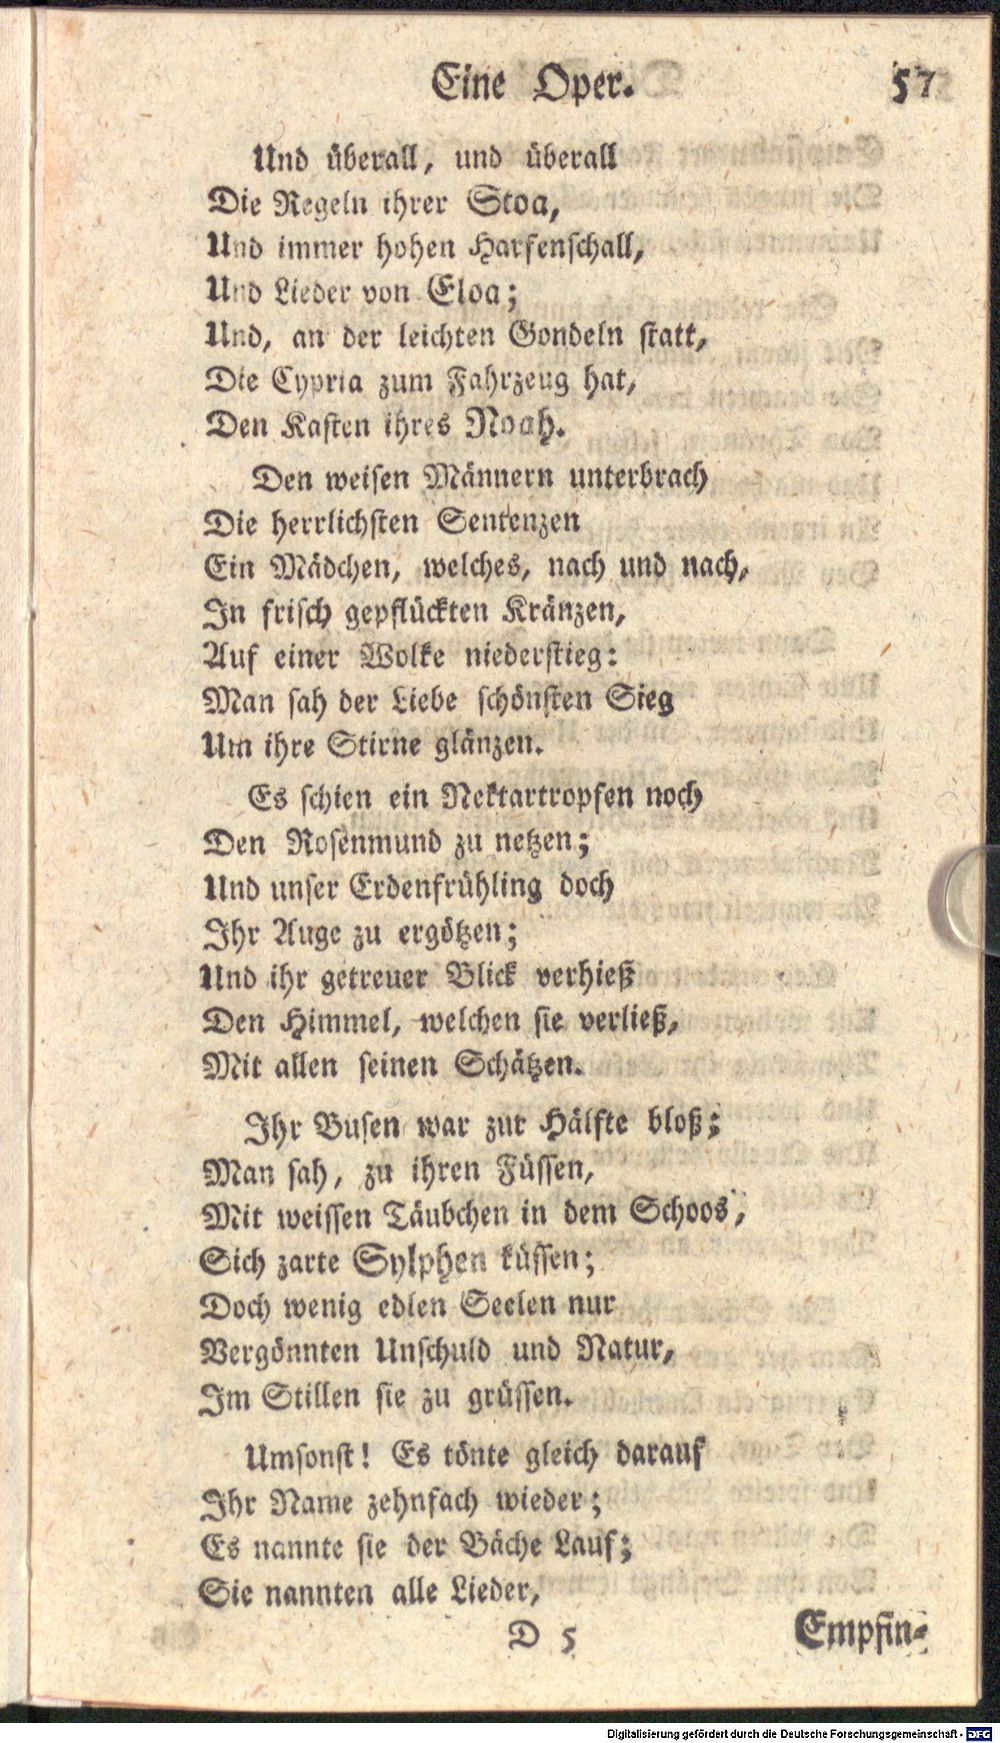 Eine Oper. 57
Und überall, und überall
Die Regeln ihrer Stoa,
Und immer hohen Harfenschall,
Und Lieder von Eloa;
Und, an der leichten Gondeln statt,
Die Cypria zum Fahrzeug hat,
Den Kasten ihres Noah.
Den weisen Männern unterbrach
Die herrlichsten Sentenzen
Ein Mädchen, welches, nach und nach,
In frisch gepflückten Kränzen,
Auf einer Wolke niederstieg:
Man sah der Liebe schönsten Sieg
Um ihre Stirne glänzen.
Es schien ein Nektartropfen noch
Den Rosenmund zu netzen;
Und unser Erdenfrühling doch
Ihr Auge zu ergötzen;
Und ihr getreuer Blick verhieß
Den Himmel, welchen sie verließ,
Mit allen seinen Schätzen.
Ihr Busen war zur Hälfte bloß;
Man sah, zu ihren Füssen,
Mit weissen Täubchen in dem Schoos,
Sich zarte Sylphen küssen;
Doch wenig edlen Seelen nur
Vergönnten Unschuld und Natur,
Im Stillen sie zu grüssen.
Umsonst! Es tönte gleich darauf
Ihr Name zehnfach wieder;
Es nannte sie der Bäche Lauf;
Sie nannten alle Lieder,
D 5 Empfin-
Digitalisierung gefördert durch die Deutsche Forschungsgemeinschaft - DFG